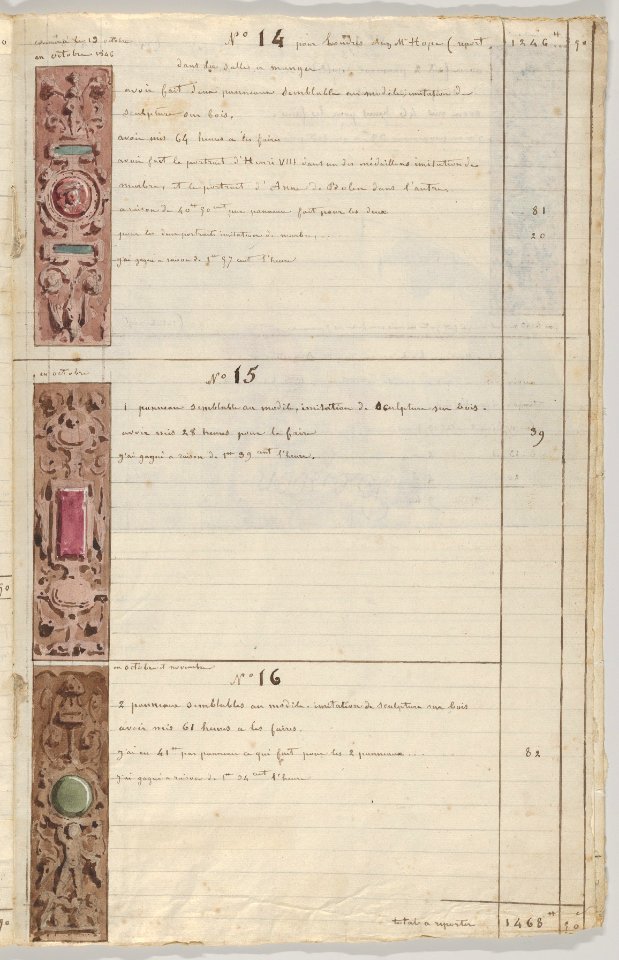 commencé le 13 octobre
en octobre 1846
No 14 pour Londres chez Mr Hope (report 1246 tt 90
dans la salle a manger
avoir fait deux panneaux semblable au modèle, imitation de
sculpture sur bois.
avoir mis 64 heures a les faire
avoir fait le portrait d'Henri VIII dans un des médaillons imitation de
marbre, et le portrait d'Anne de Bolen dans l'autre.
a raison de 40 tt 50 cent par panneau fait pour les deux 81
pour les deux portraits imitation de marbre, ... 20
j'ai gagné a raison de 1 tt 57 cent l'heure
en octobre
No 15
1 panneau semblable au modèle, imitation de sculpture sur bois.
avoir mis 28 heures pour le faire 39
j'ai gagné a raison de 1 tt 39 cent l'heure.
en octobre et novembre
No 16
2 panneaux semblables au modèle. imitation de sculpture sur bois
avoir mis 61 heures a les faires.
j'ai eu 41 tt par panneau ce qui fait pour les 2 panneaux ... 82
j'ai gagné a raison de 1 tt 34 cent l'heure
total a reporter 1468 tt 90 c